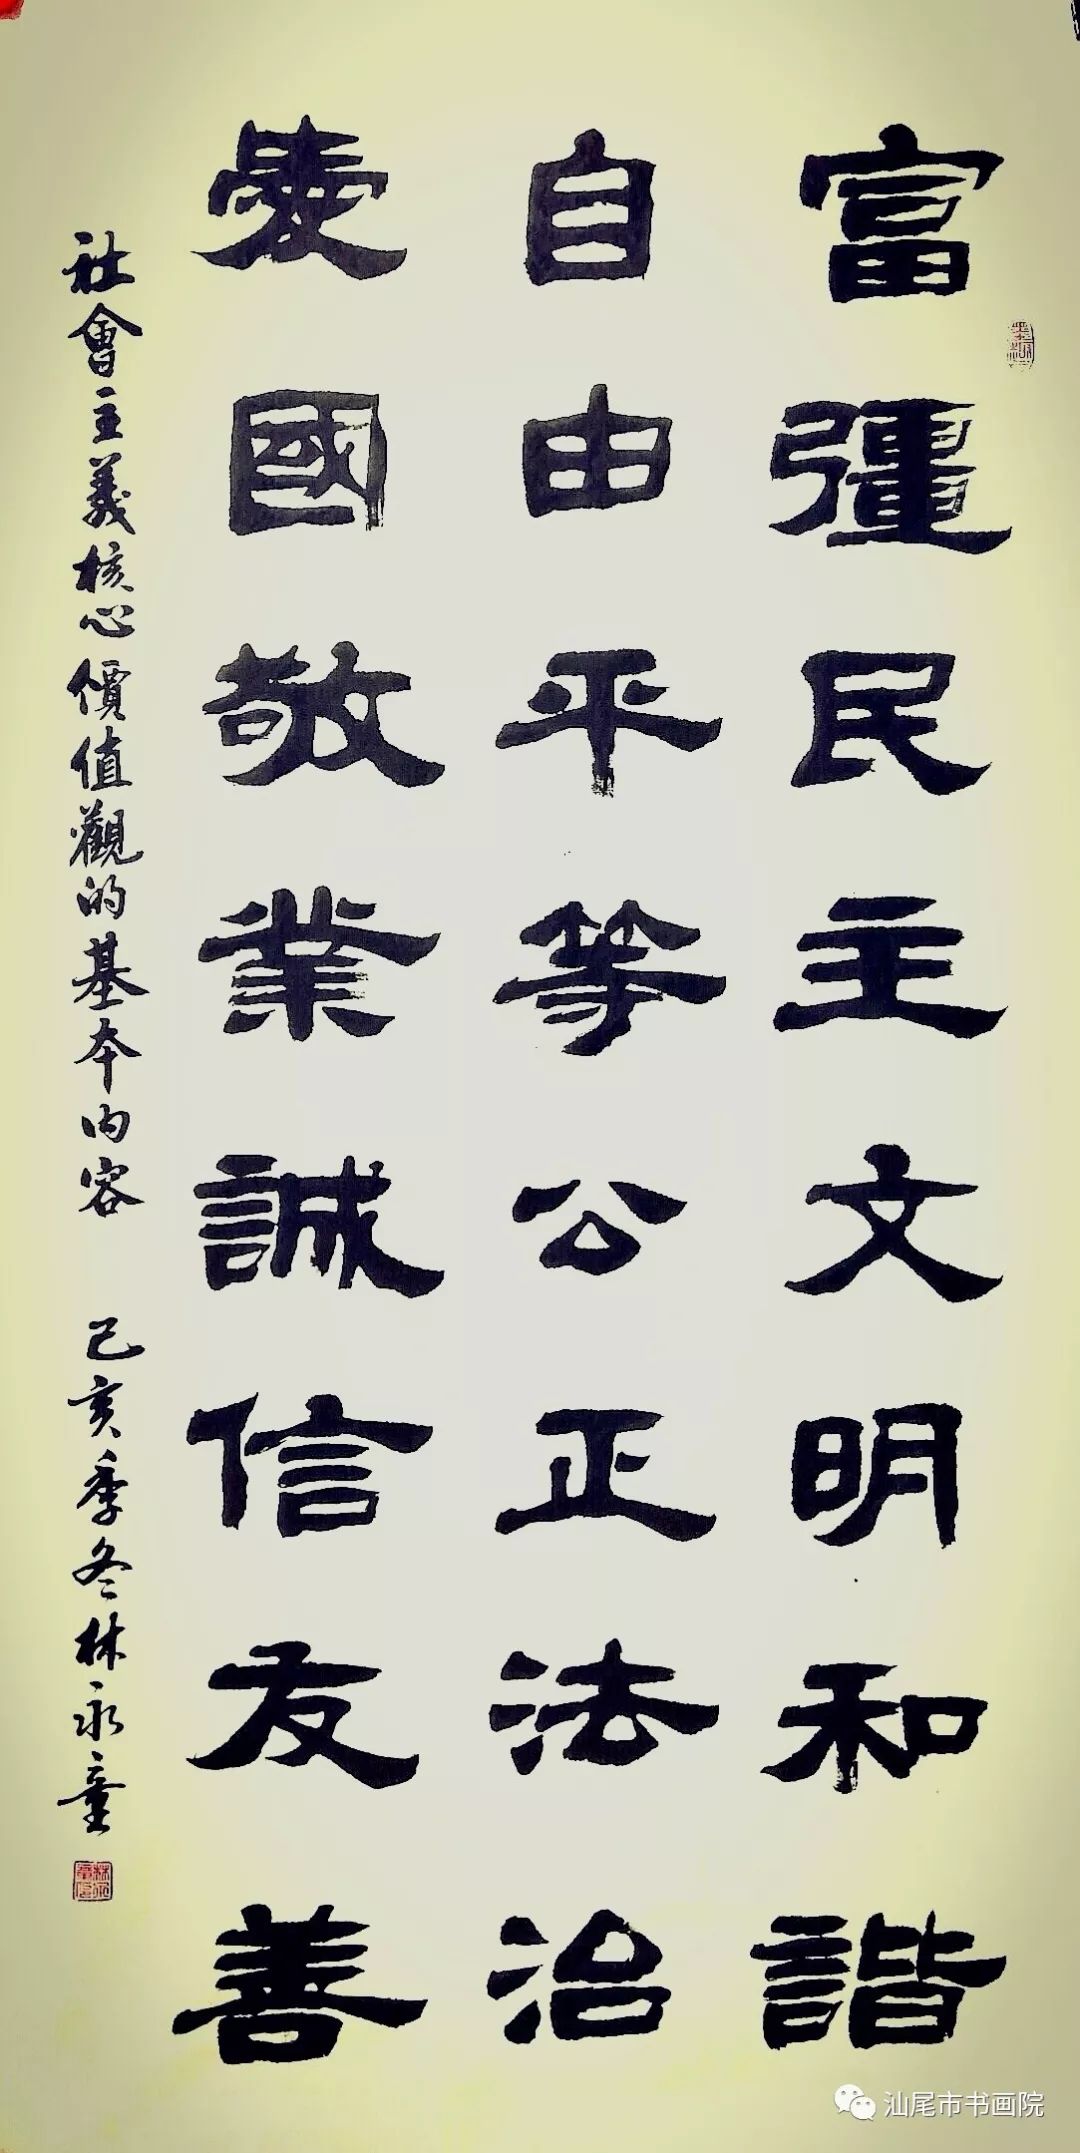 富彊民主文明和諧
自由平等公正法治
愛國敬業誠信友善
社會主義核心價值觀的基本内容 己亥季冬林永童
汕尾市书画院